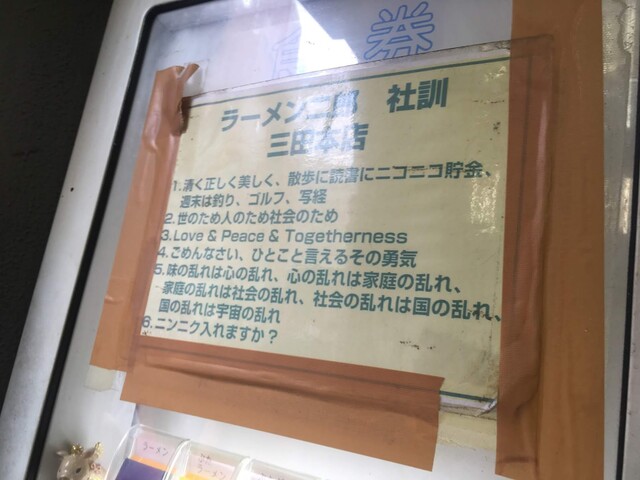 食券
ラーメン二郎 社訓
三田本店
1.清く正しく美しく、散歩に読書にニコニコ貯金、
週末は釣り、ゴルフ、写経
2.世のため人のため社会のため
3.Love & Peace & Togetherness
4.ごめんなさい、ひとこと言えるその勇気
5.味の乱れは心の乱れ、心の乱れは家庭の乱れ、
家庭の乱れは社会の乱れ、社会の乱れは国の乱れ、
国の乱れは宇宙の乱れ
6.ニンニク入れますか？
ラーメン
ラーメン